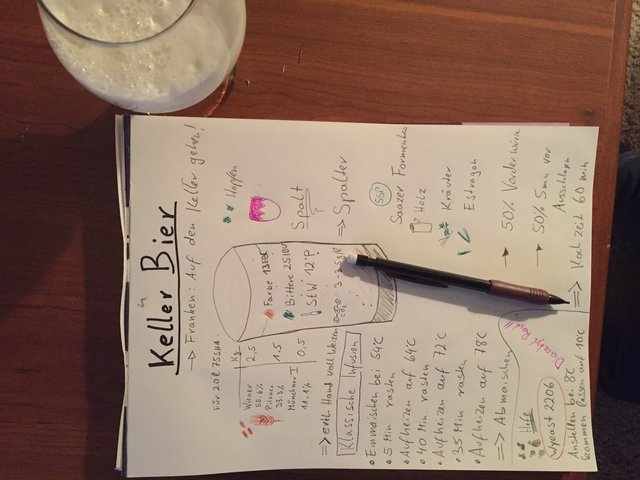 Keller Bier
→ Franken: Auf den Keller gehen!
Für 20L 75% SHA
kg
Wiener 55.6%
2,5
Pilsner 33,3%
1.5
Münchner I 11.1%
0,5
Hand voll Weizen
Klassische Infusion
• Einmaischen bei 54°C
• 5 Min rasten
• Aufheizen auf 64°C
• 40 Min rasten
• Aufheizen auf 72°C
• 35 Min rasten
• Aufheizen auf 78°C
⇒ Abmaischen
Farbe 13 EBC
Bittere 25 IBU
StW 12°P
CO₂
Hopfen
Spalt
?
⇒ Spalter
SSP
Saazer Formenkreis
Holz
Kräuter
Estragon
→ 50% Vorderwürze
→ 50% 5 min vor
Ausschlagen
⇒ Kochzeit 60 min
Hefe
Wyeast 2206
Diacetyl Rast!
Anstellen bei 8°C
kommen lassen auf 10°C